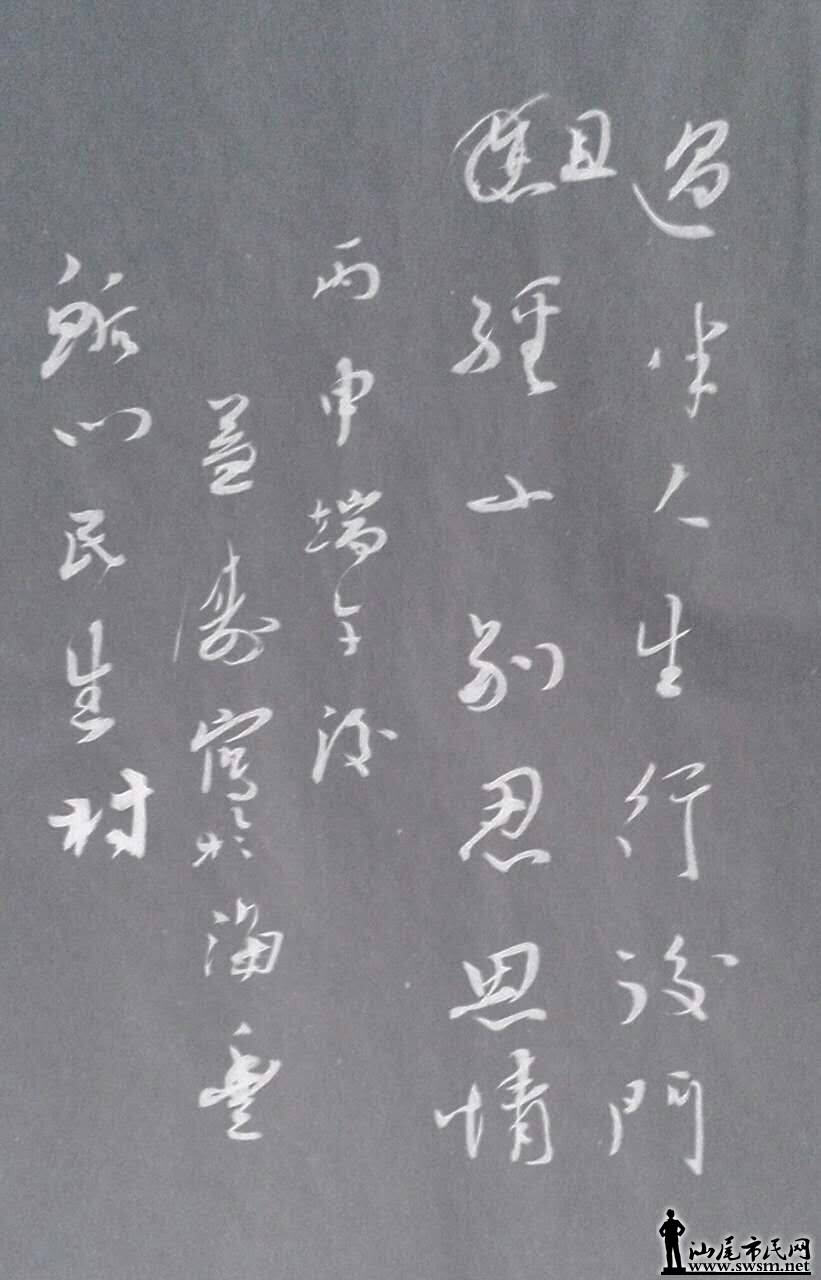 過半人生行後門
且經山別思恩情
丙申端午後
益壽寫於海豐
鮜門民生村
汕尾市民网
www.swsm.net